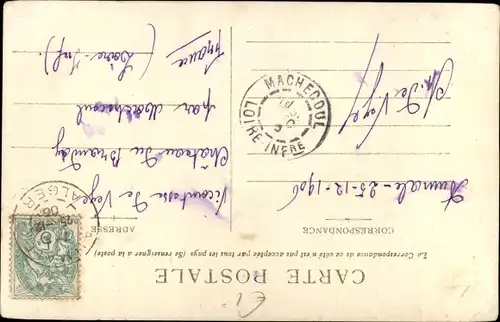 CARTE POSTALE
La Correspondance de ce côté n'est pas acceptée par tous les pays (Se renseigner à la poste)
CORRESPONDANCE
ADRESSE
Aumale - 25-12-1906
Vicomtesse de
Château du
par Machecoul
(Loire-Inf)
France
MACHECOUL
LOIRE INFRE
ALGER